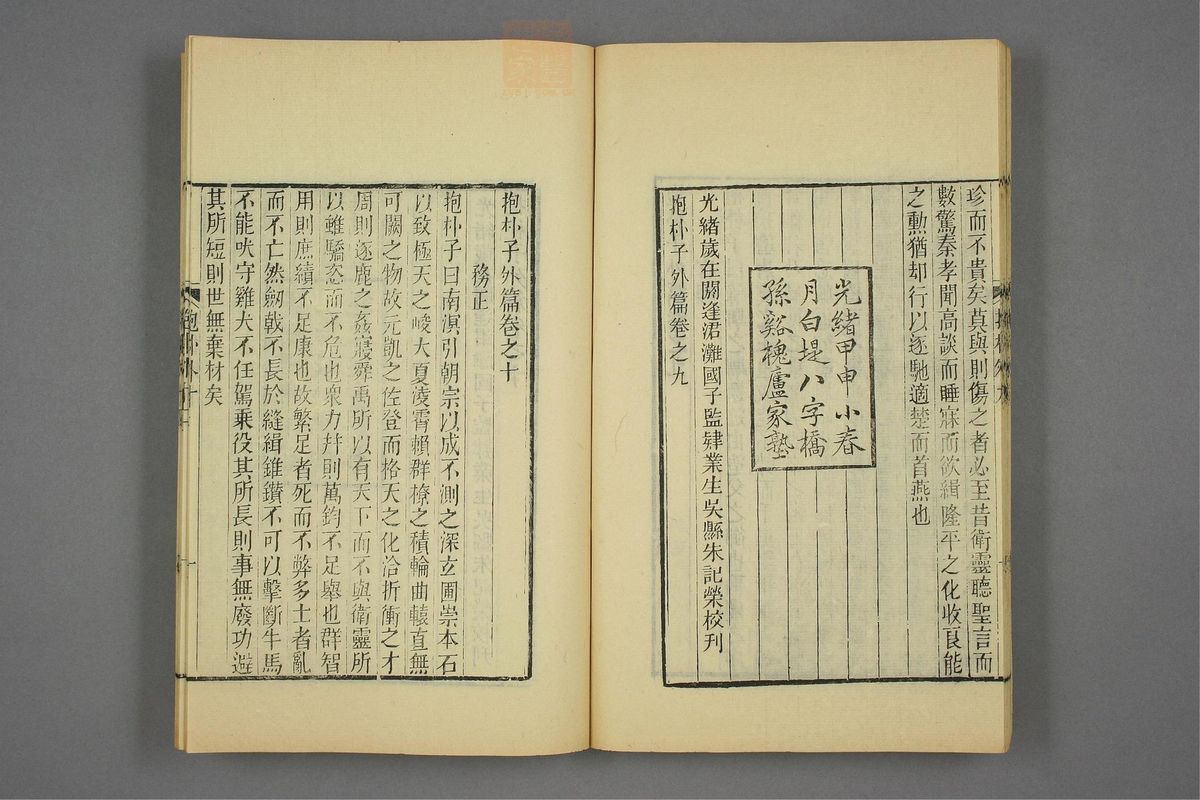 珍而不貴矣莫與則傷之者必至昔衛靈聽聖言而
數驚秦孝聞高談而睡寐而欲緝隆平之化收良能
之勳猶却行以逐馳適楚而首燕也
光緒甲申小春
月白堤八字橋
孫谿槐廬家塾
光緒歲在閼逢涒灘國子監肄業生吳縣朱記榮校刊
抱朴子外篇卷之九
抱朴子外篇卷之十
務正
抱朴子曰南溟引朝宗以成不測之深玄圃崇本石
以致極天之峻大夏淩霄賴群橑之積輪曲轅直無
可闕之物故元凱之佐登而格天之化洽折衝之才
周則逐鹿之姦寢舜禹所以有天下而不與衛靈所
以雖驕恣而不危也衆力幷則萬鈞不足舉也群智
用則庶績不足康也故繁足者死而不弊多士者亂
而不亡然劔戟不長於縫緝錐鑽不可以擊斷牛馬
不能吠守雞犬不任駕乗役其所長則事無廢功避
其所短則世無棄材矣